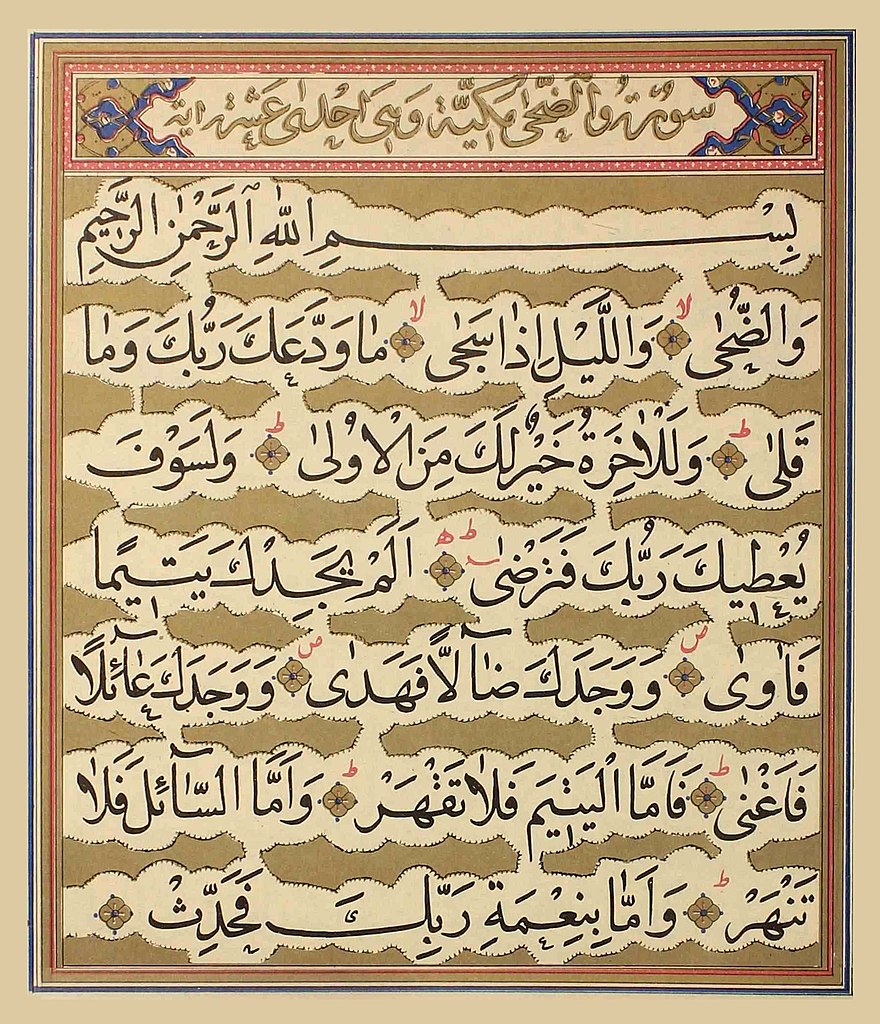 سورة والضحى مكية وهى احدى عشرة اية
بِسْمِ اللّٰهِ الرَّحْمٰنِ الرَّحِيمِ
وَالضُّحٰى لا وَالَّيْلِ اِذَا سَجٰى لا مَا وَدَّعَكَ رَبُّكَ وَمَا
قَلٰى ط وَلَلْاٰخِرَةُ خَيْرٌ لَكَ مِنَ الْاُولٰى ط وَلَسَوْفَ
يُعْطِيكَ رَبُّكَ فَتَرْضٰى ط ه اَلَمْ يَجِدْكَ يَتِيمًا
فَاٰوٰى ص وَوَجَدَكَ ضَٓالًّا فَهَدٰى ص وَوَجَدَكَ عَٓائِلًا
فَاَغْنٰى ط فَاَمَّا الْيَتِيمَ فَلَا تَقْهَرْ ط وَاَمَّا السَّٓائِلَ فَلَا
تَنْهَرْ ط وَاَمَّا بِنِعْمَةِ رَبِّكَ فَحَدِّثْ